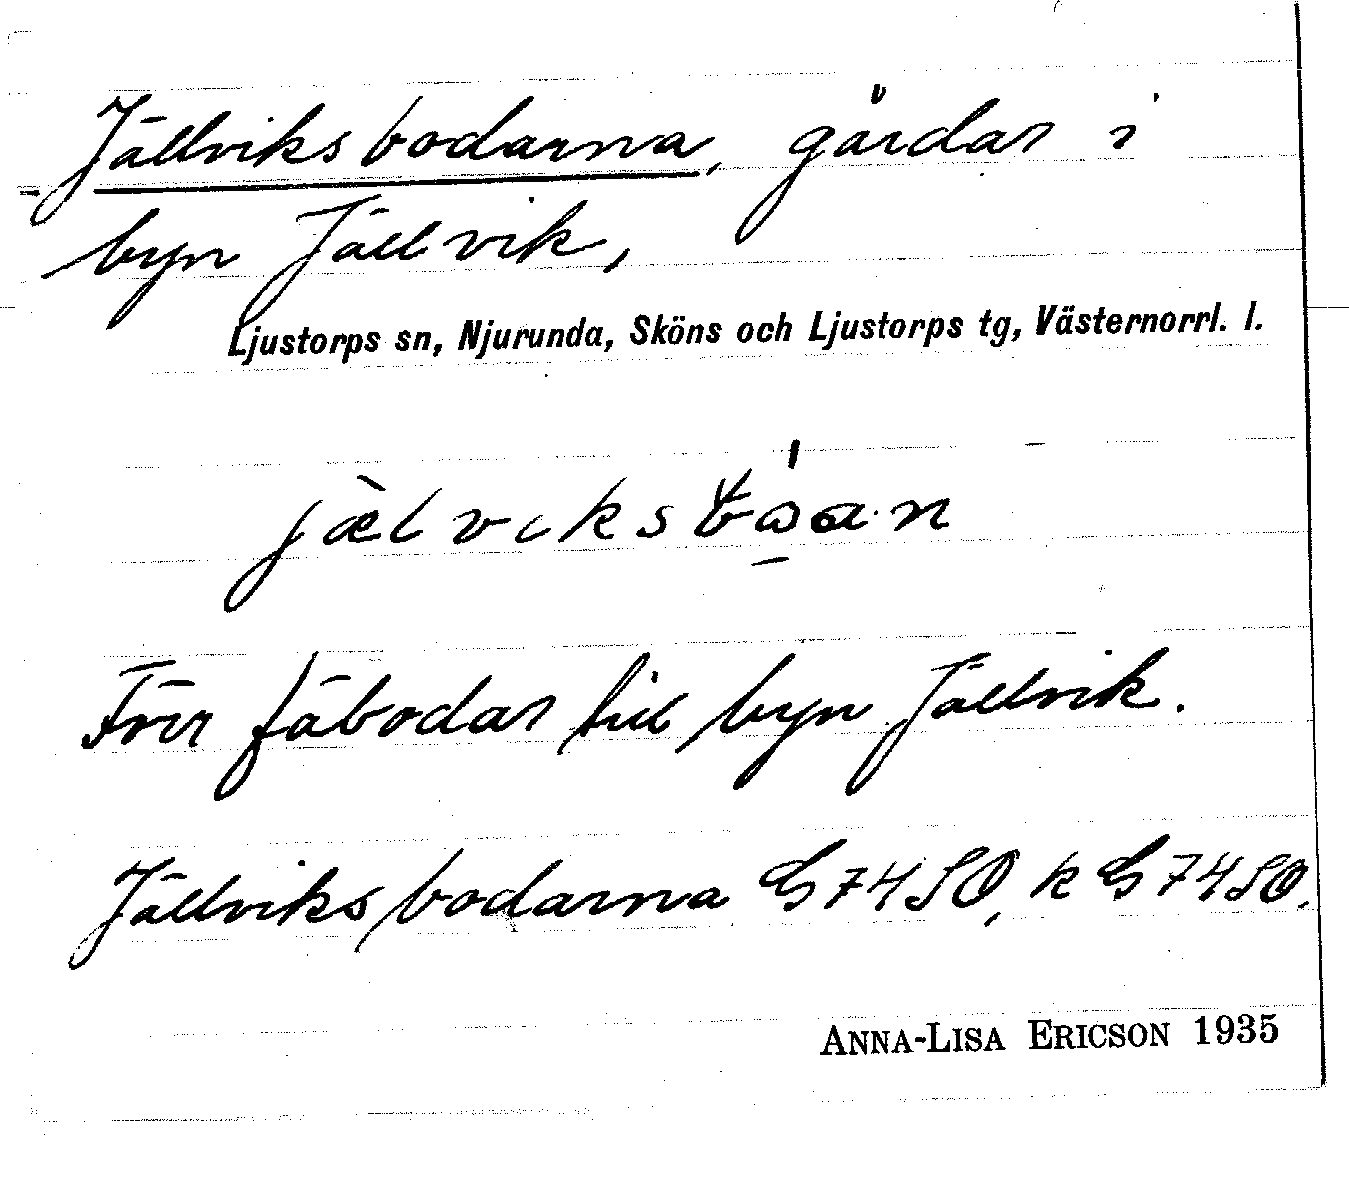 Jällviksbodarna, gårdar i
byn Jällvik,
Ljustorps sn, Njurunda, Sköns och Ljustorps tg, Västernorrl. l.
Förr fäbodar till byn Jällvik.
Jällviksbodarna G74SO, k G74SO.
ANNA-LISA ERICSON 1935